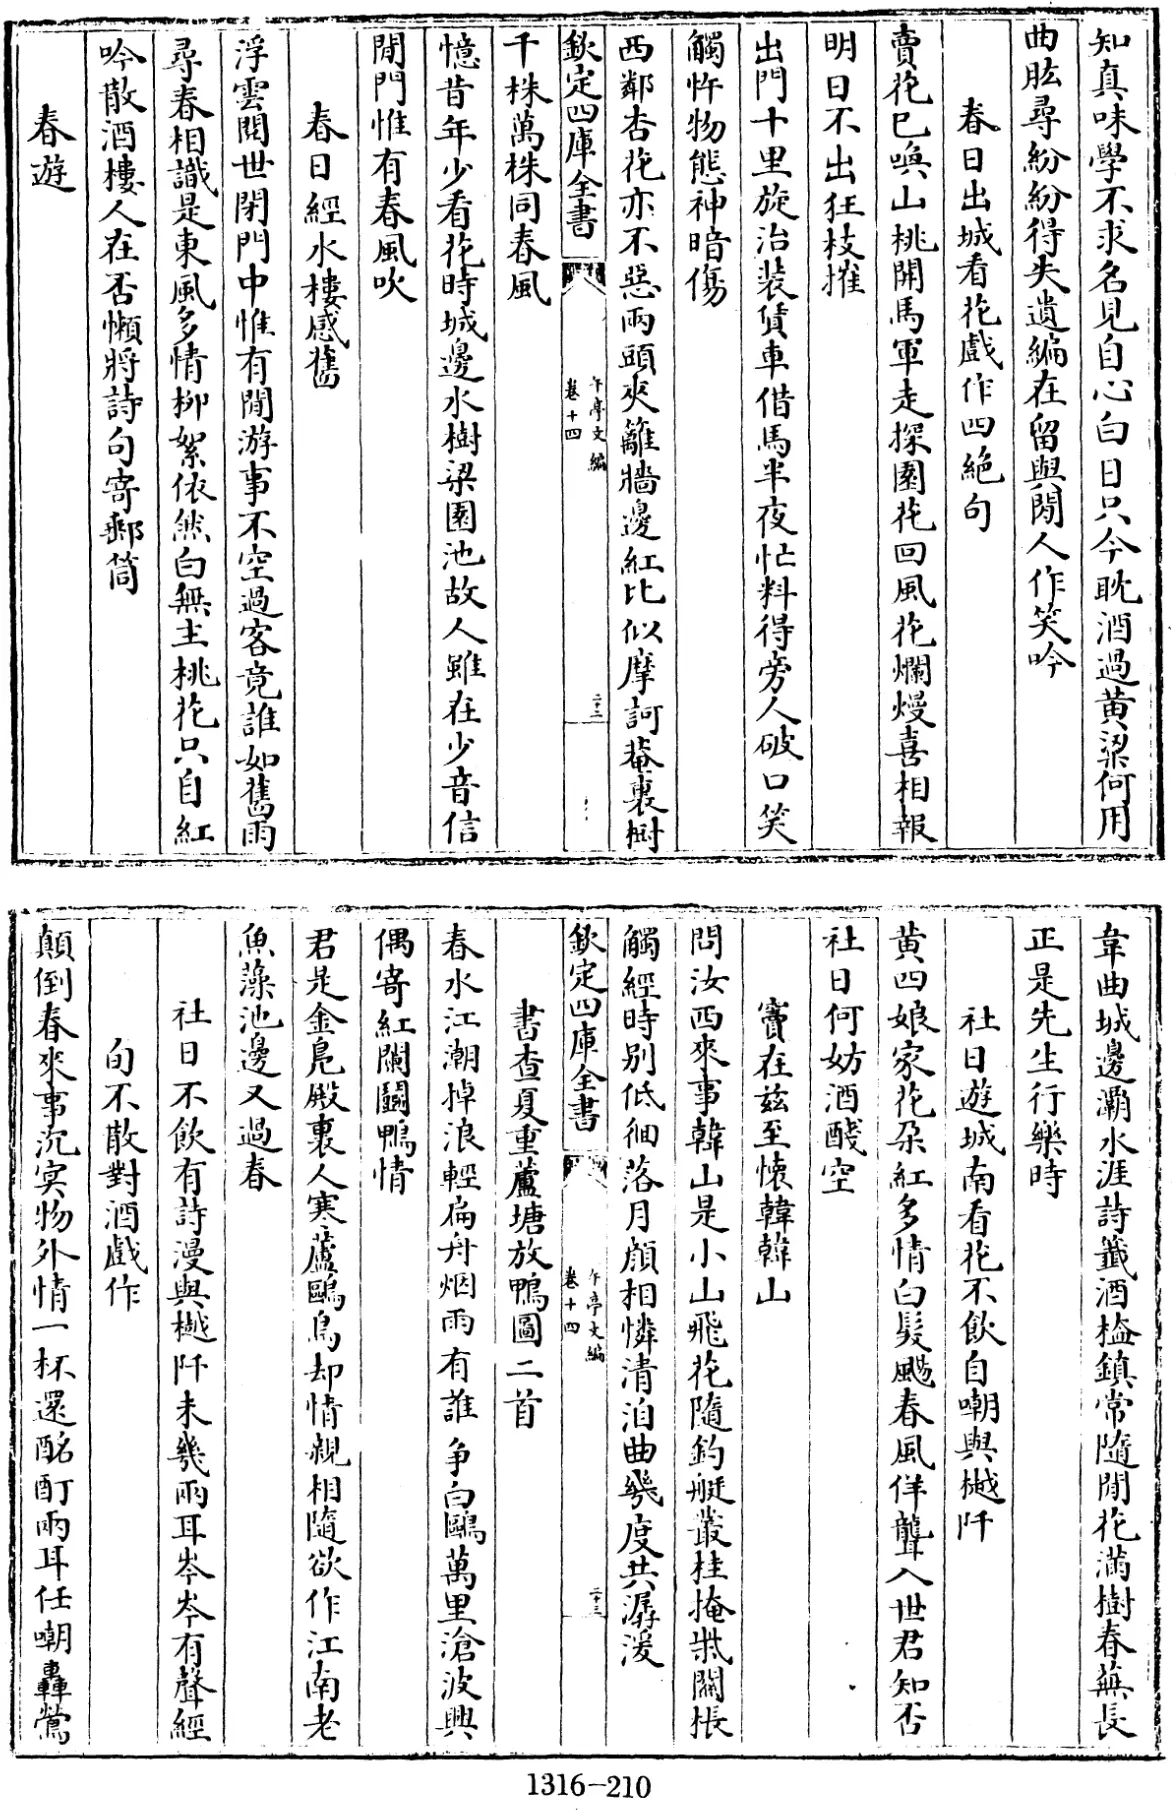 知真味學不求名見自心白日只今耽酒過黄粱何用
曲肱尋紛紛得失遺編在留與閒人作笑吟
春日出城看花戲作四絶句
賣花已喚山桃開馬軍走探園花回風花爛熳喜相報
明日不出狂枝摧
出門十里旋治裝賃車借馬半夜忙料得旁人破口笑
觸忤物態神暗傷
西鄰杏花亦不惡兩頭夾籬牆邊紅比似摩訶菴裏樹
欽定四庫全書
午亭文編
卷十四
二十二
千株萬株同春風
憶昔年少看花時城邊水樹梁園池故人雖在少音信
閒門惟有春風吹
春日經水樓感舊
浮雲閱世閉門中惟有閒游事不空過客竟誰如舊雨
尋春相識是東風多情柳絮依然白無主桃花只自紅
吟散酒樓人在否懶將詩句寄郵筒
春遊
韋曲城邊灞水涯詩籤酒榼鎮常隨閒花滿樹春蕪長
正是先生行樂時
社日遊城南看花不飲自嘲與樾阡
黄四娘家花朶紅多情白髮颺春風佯聾入世君知否
社日何妨酒醆空
竇在兹至懷韓韓山
問汝西來事韓山是小山飛花隨釣艇叢桂掩柴關悵
觸經時别低徊落月顔相憐清泊曲幾度共潺湲
欽定四庫全書
午亭文編
卷十四
二十三
書查夏重蘆塘放鴨圖二首
春水江潮掉浪輕扁舟烟雨有誰争白鷗萬里滄波興
偶寄紅闌鬭鴨情
君是金鳬殿裏人寒蘆鷗鳥却情親相隨欲作江南老
魚藻池邊又過春
社日不飲有詩漫與樾阡未幾兩耳岑岑有聲經
旬不散對酒戲作
顛倒春來事沉冥物外情一杯還酩酊兩耳任嘲轟鶯
1316-210